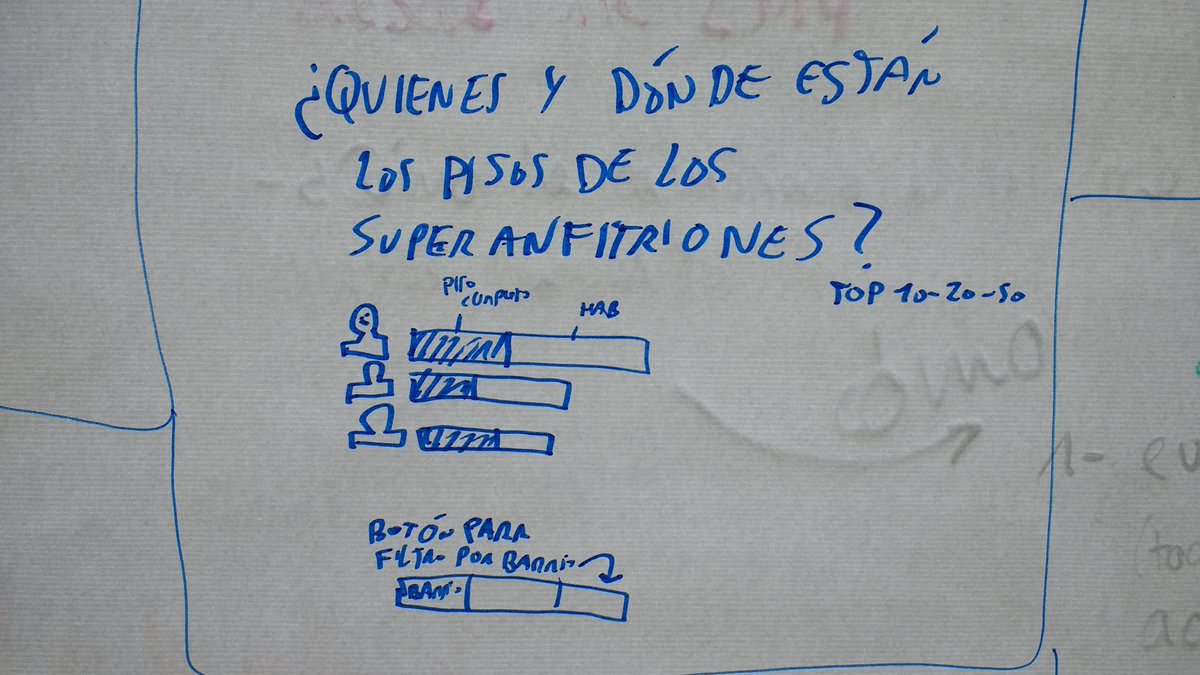 ¿QUIENES Y DÓNDE ESTÁN
LOS PISOS DE LOS
SUPERANFITRIONES?
TOP 10-20-50
PISO
COMPLETO
HAB
BOTÓN PARA
FILTRO POR BARRIO
BARRIO
1- eu
(too
ac